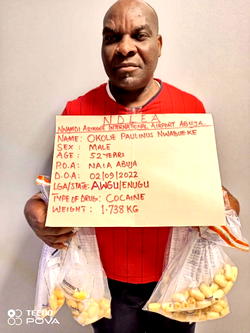 NDLEA
NNAMDI AZIKIWE INTERNATIONAL AIRPORT ABUJA
NAME: OKOLIE PAULINUS NWABUEKE
SEX: MALE
AGE: 52 YEARS
P.O.A: NAIA ABUJA
D.O.A: 02/09/2022
LGA/STATE: AWGU/ENUGU
TYPE OF DRUG: COCAINE
WEIGHT: 1.738 KG
TECNO
POVA